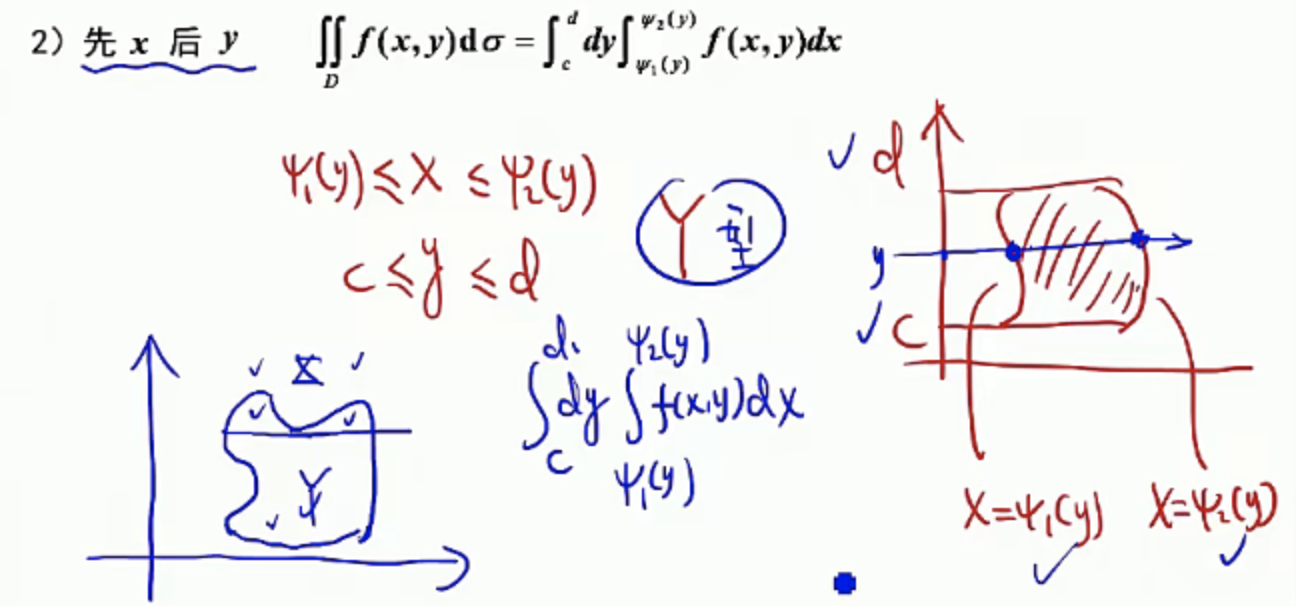 2) 先 x 后 y ∬_D f(x,y)dσ = ∫_c^d dy∫_{ψ₁(y)}^{ψ₂(y)} f(x,y)dx
ψ₁(y) ≤ X ≤ ψ₂(y)
c ≤ y ≤ d
Y型
∫_c^d dy ∫_{ψ₁(y)}^{ψ₂(y)} f(x,y)dx
✓ d
y
✓ c
X=ψ₁(y) ✓
X=ψ₂(y) ✓
✓ X ✓
✓ ✓
Y
✓